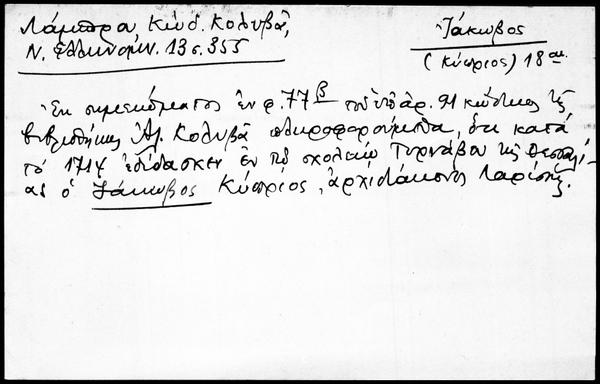 Λάμπρου, Κώδ. Κολυβᾶ,
Ν. Ἑλληνομν. 13 σ. 355
Ἰάκωβος
(Κύπριος) 18 αι.
Ἐκ σημειώματος ἐν φ. 77β τοῦ ὑπ' ἀρ. 91 κώδικος τῆς
βιβλιοθήκης Ἁγ. Κολυβᾶ πληροφορούμεθα, ὅτι κατὰ
τὸ 1714 ἐδίδασκεν ἐν τῷ σχολείῳ Τυρνάβου τῆς Θεσσαλί-
ας ὁ Ἰάκωβος Κύπριος, ἀρχιδιάκονος Λαρίσης.